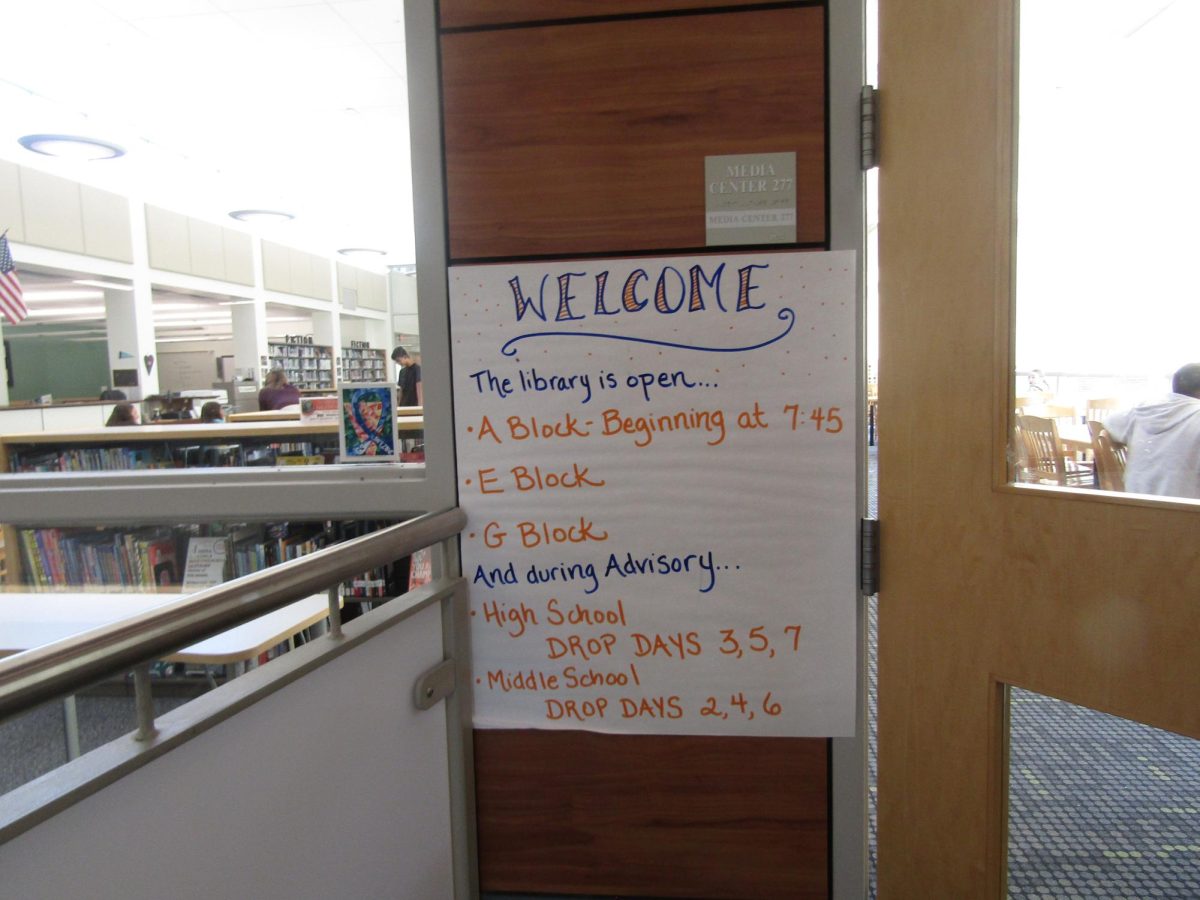 FICTION
FICTION
MEDIA
CENTER 277
MEDIA CENTER 277
WELCOME
The library is open...
• A Block - Beginning at 7:45
• E Block
• G Block
And during Advisory...
• High School
DROP DAYS 3, 5, 7
• Middle School
DROP DAYS 2, 4, 6